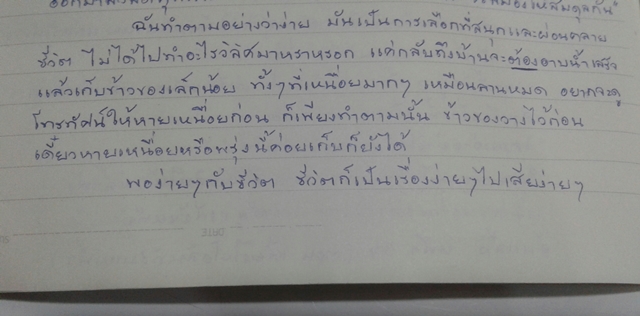 ฉันทำตามอย่างว่าง่าย มันเป็นการเลือกที่สนุกและผ่อนคลาย
ชีวิต ไม่ได้ไปทำอะไรวิลิศมาหราหรอก แค่กลับถึงบ้านจะต้องอาบน้ำเสร็จ
แล้วเก็บข้าวของเล็กน้อย ทั้งๆที่เหนื่อยมากๆ เหมือนลานหมด อยากจะดู
โทรทัศน์ให้หายเหนื่อยก่อน ก็เพียงทำตามนั้น ข้าวของวางไว้ก่อน
เดี๋ยวหายเหนื่อยหรือพรุ่งนี้ค่อยเก็บก็ยังได้
พอง่ายๆกับชีวิต ชีวิตก็เป็นเรื่องง่ายๆไปเสียง่ายๆ
DATE